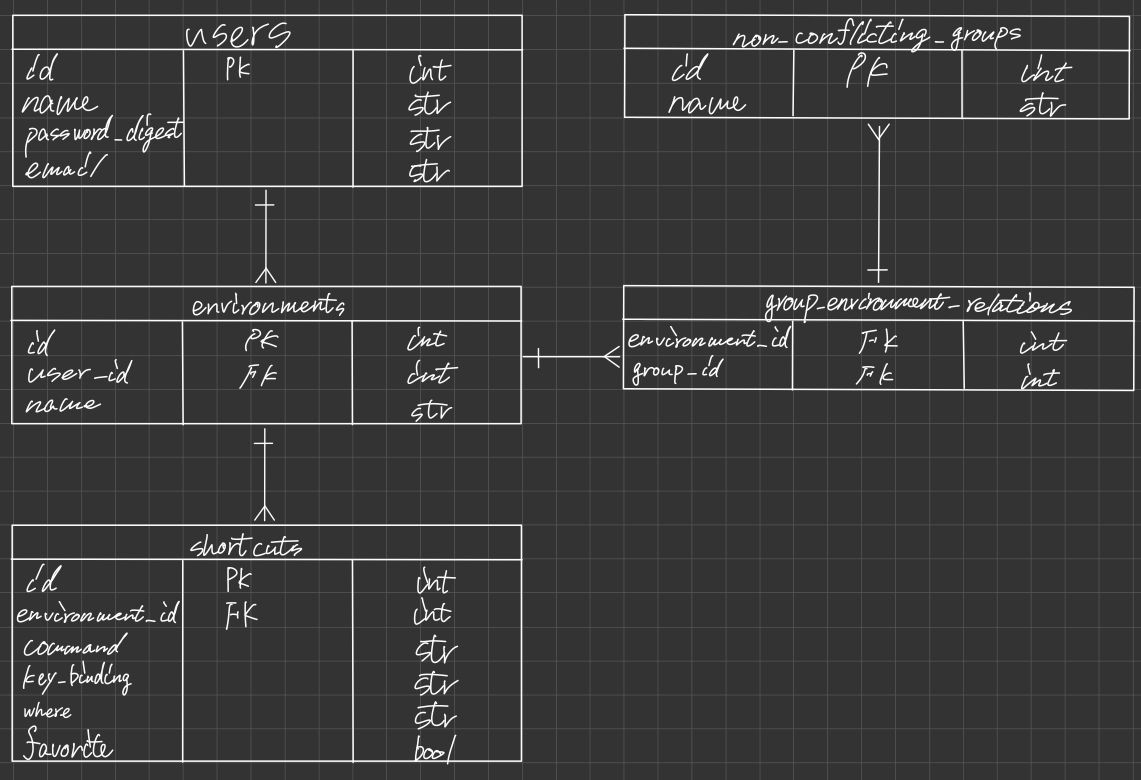 users
id PK int
name str
password_digest str
email str
non_conflicting_groups
id PK int
name str
environments
id PK int
user_id FK int
name str
group_environment_relations
environment_id FK int
group_id FK int
shortcuts
id PK int
environment_id FK int
command str
key_binding str
where str
favorite bool